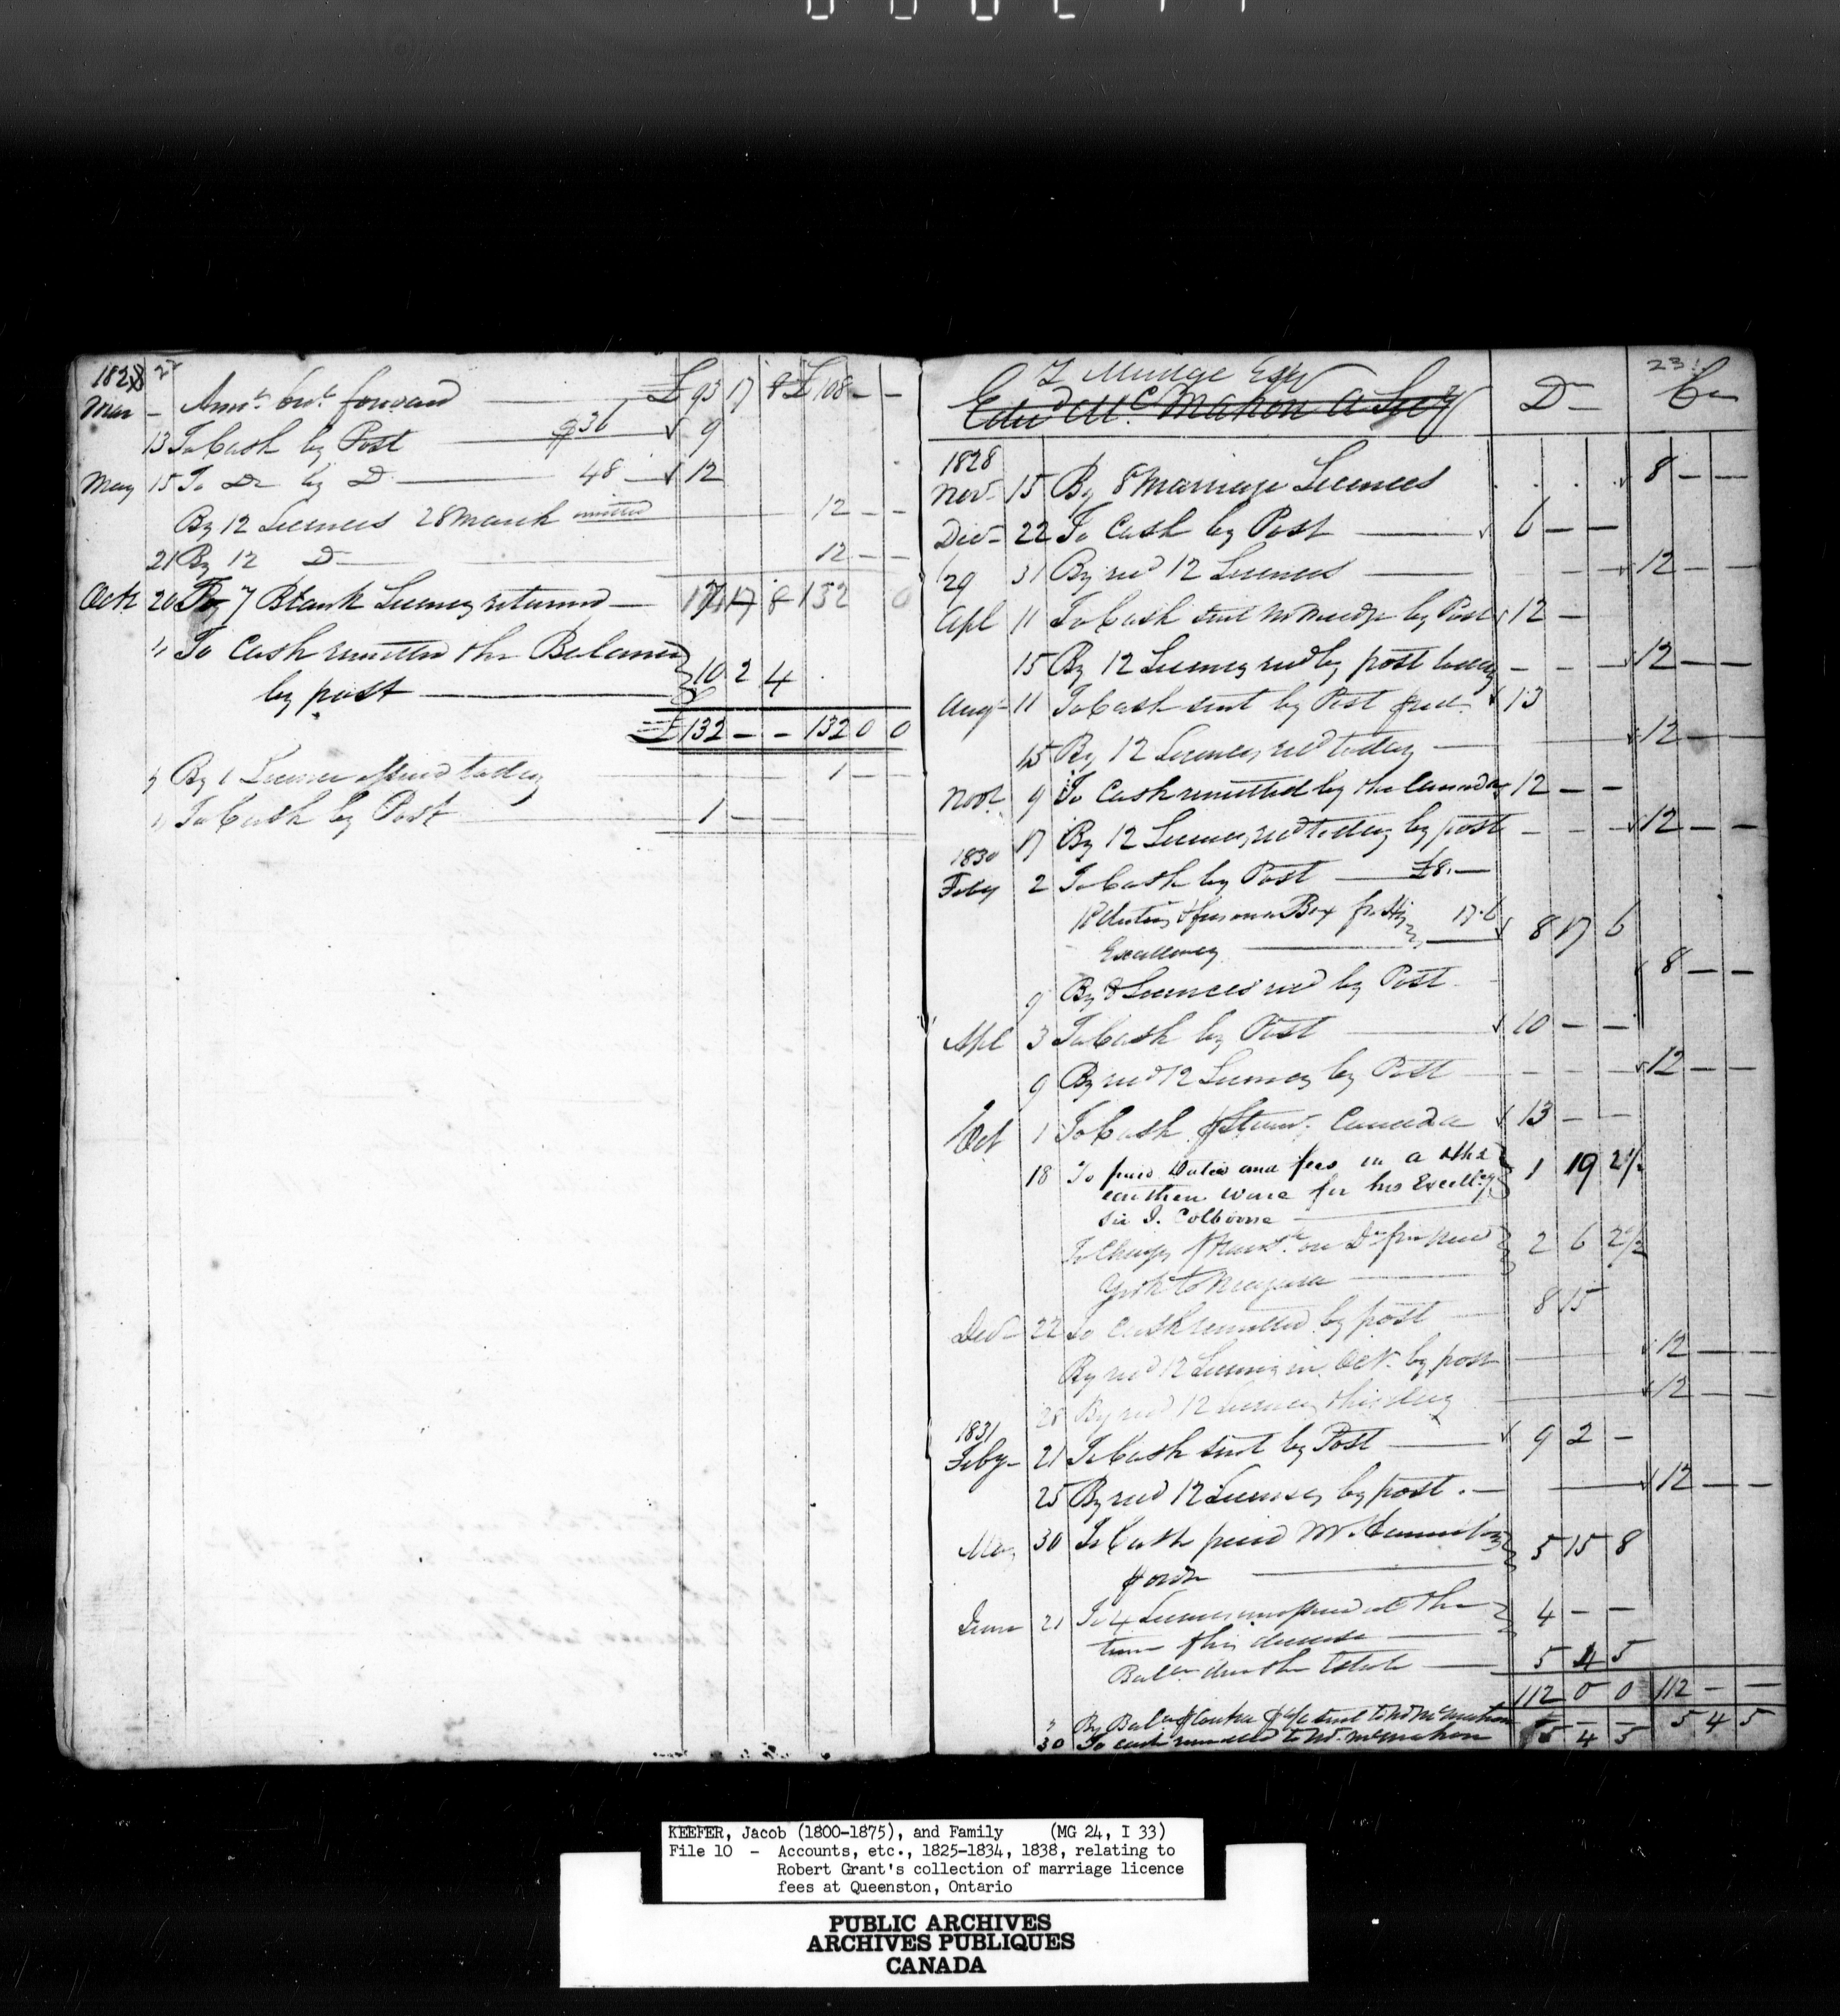 1828 22
Mar - Amt. brot. forward £93 17 8 £108 - -
13 To Cash by Post 36 9
May 15 To Do by Do 48 12
By 12 Licences 28 March omitted 12 - -
21 By 12 Do 12 - -
Octr 20 To 7 Blank Licences returned 17 8 132 0
" To Cash remitted the Balance
by post 10 2 4
£132 - - 132 0 0
" By 1 Licence issued today 1 - -
" To Cash by Post 1 - -
23
Z Mudge Esqr
Edwd McMahon A Secy Dr Cr
1828
Novr 15 By 8 Marriage Licences 8 - -
Decr 22 To Cash by Post 6 - -
29 31 By recd 12 Licences 12 - -
Apl 11 To Cash sent Mr Mudge by Post 12 -
15 By 12 Licences recd by post today - - - 12 - -
Augt 11 To Cash sent by Post 13
15 By 12 Licences recd today 12 - -
Novr 9 To Cash remitted by the Canada 12 - -
17 By 12 Licences recd today by post - - - 12 - -
1830
Feby 2 To Cash by Post £8. -
on a Box for His 17.6
Excellency 8 17 6
9 By 8 Licences recd by Post 8 - -
Apl 3 To Cash by Post 10 - -
9 By recd 12 Licences by Post - - - 12 - -
Oct 1 To Cash pr Steamr Canada 13 - -
18 To paid Duties and fees on a Hhd
earthen ware for his Excellcy
Sir J. Colborne 1 19 2 1/2
To Charges on Do from New
York to Niagara 2 6 2 1/2
Decr 22 To Cash remitted by post 8 15
By recd 12 Licences in Octr. by post 12 - -
28 By recd 12 Licences this day 12 - -
1831
Feby 21 To Cash sent by Post 9 2 -
25 By recd 12 Licences by post. 12 - -
May 30 To Cash paid Mr.
order 5 15 8
June 21 To 4 Licences at the
time of his decease 4 - -
Balce due the Estate 5 4 5
112 0 0 112 - -
" By Balce pr Contra sent to Mr McMahon 5 4 5
30 To cash remitted to Mr. McMahon 5 4 5
KEEFER, Jacob (1800-1875), and Family (MG 24, I 33)
File 10 - Accounts, etc., 1825-1834, 1838, relating to
Robert Grant's collection of marriage licence
fees at Queenston, Ontario
PUBLIC ARCHIVES
ARCHIVES PUBLIQUES
CANADA